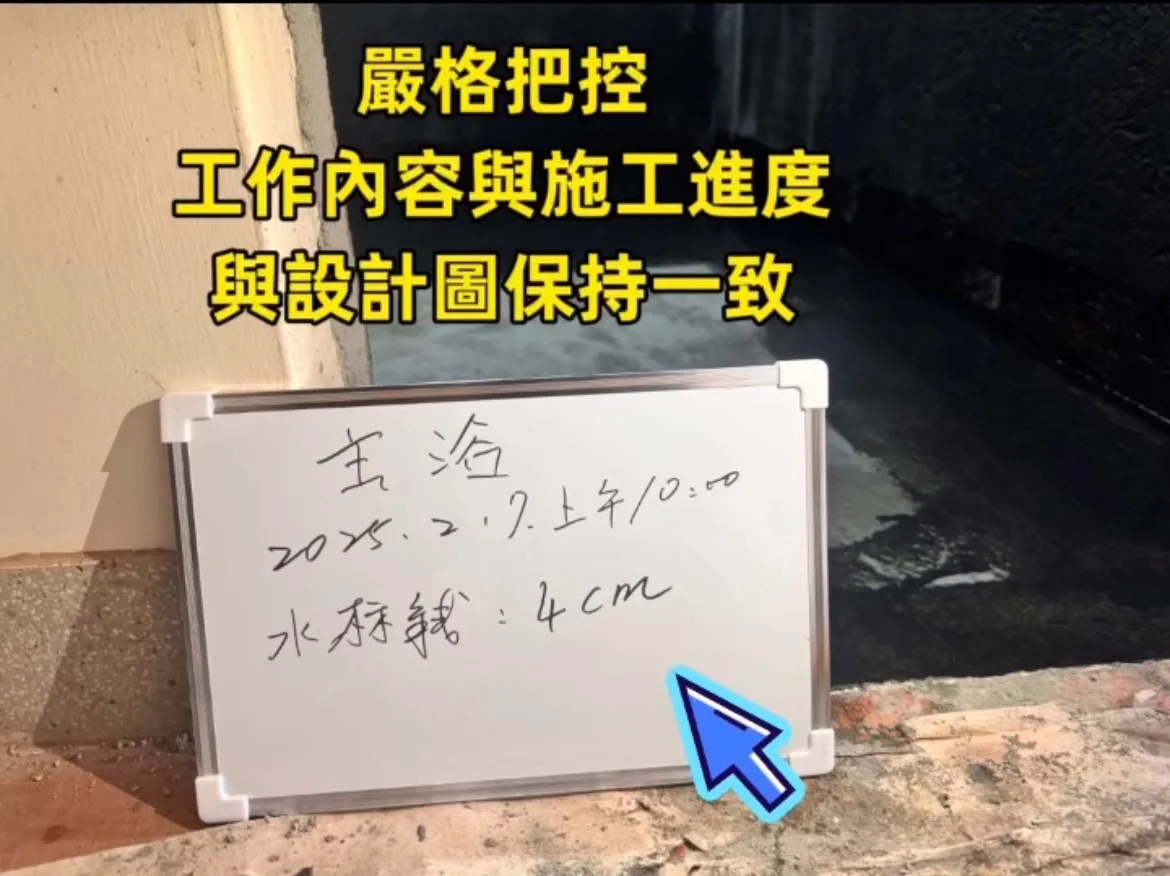 嚴格把控
工作內容與施工進度
與設計圖保持一致
主浴
2025.2.7.上午10:00
水標線:4cm